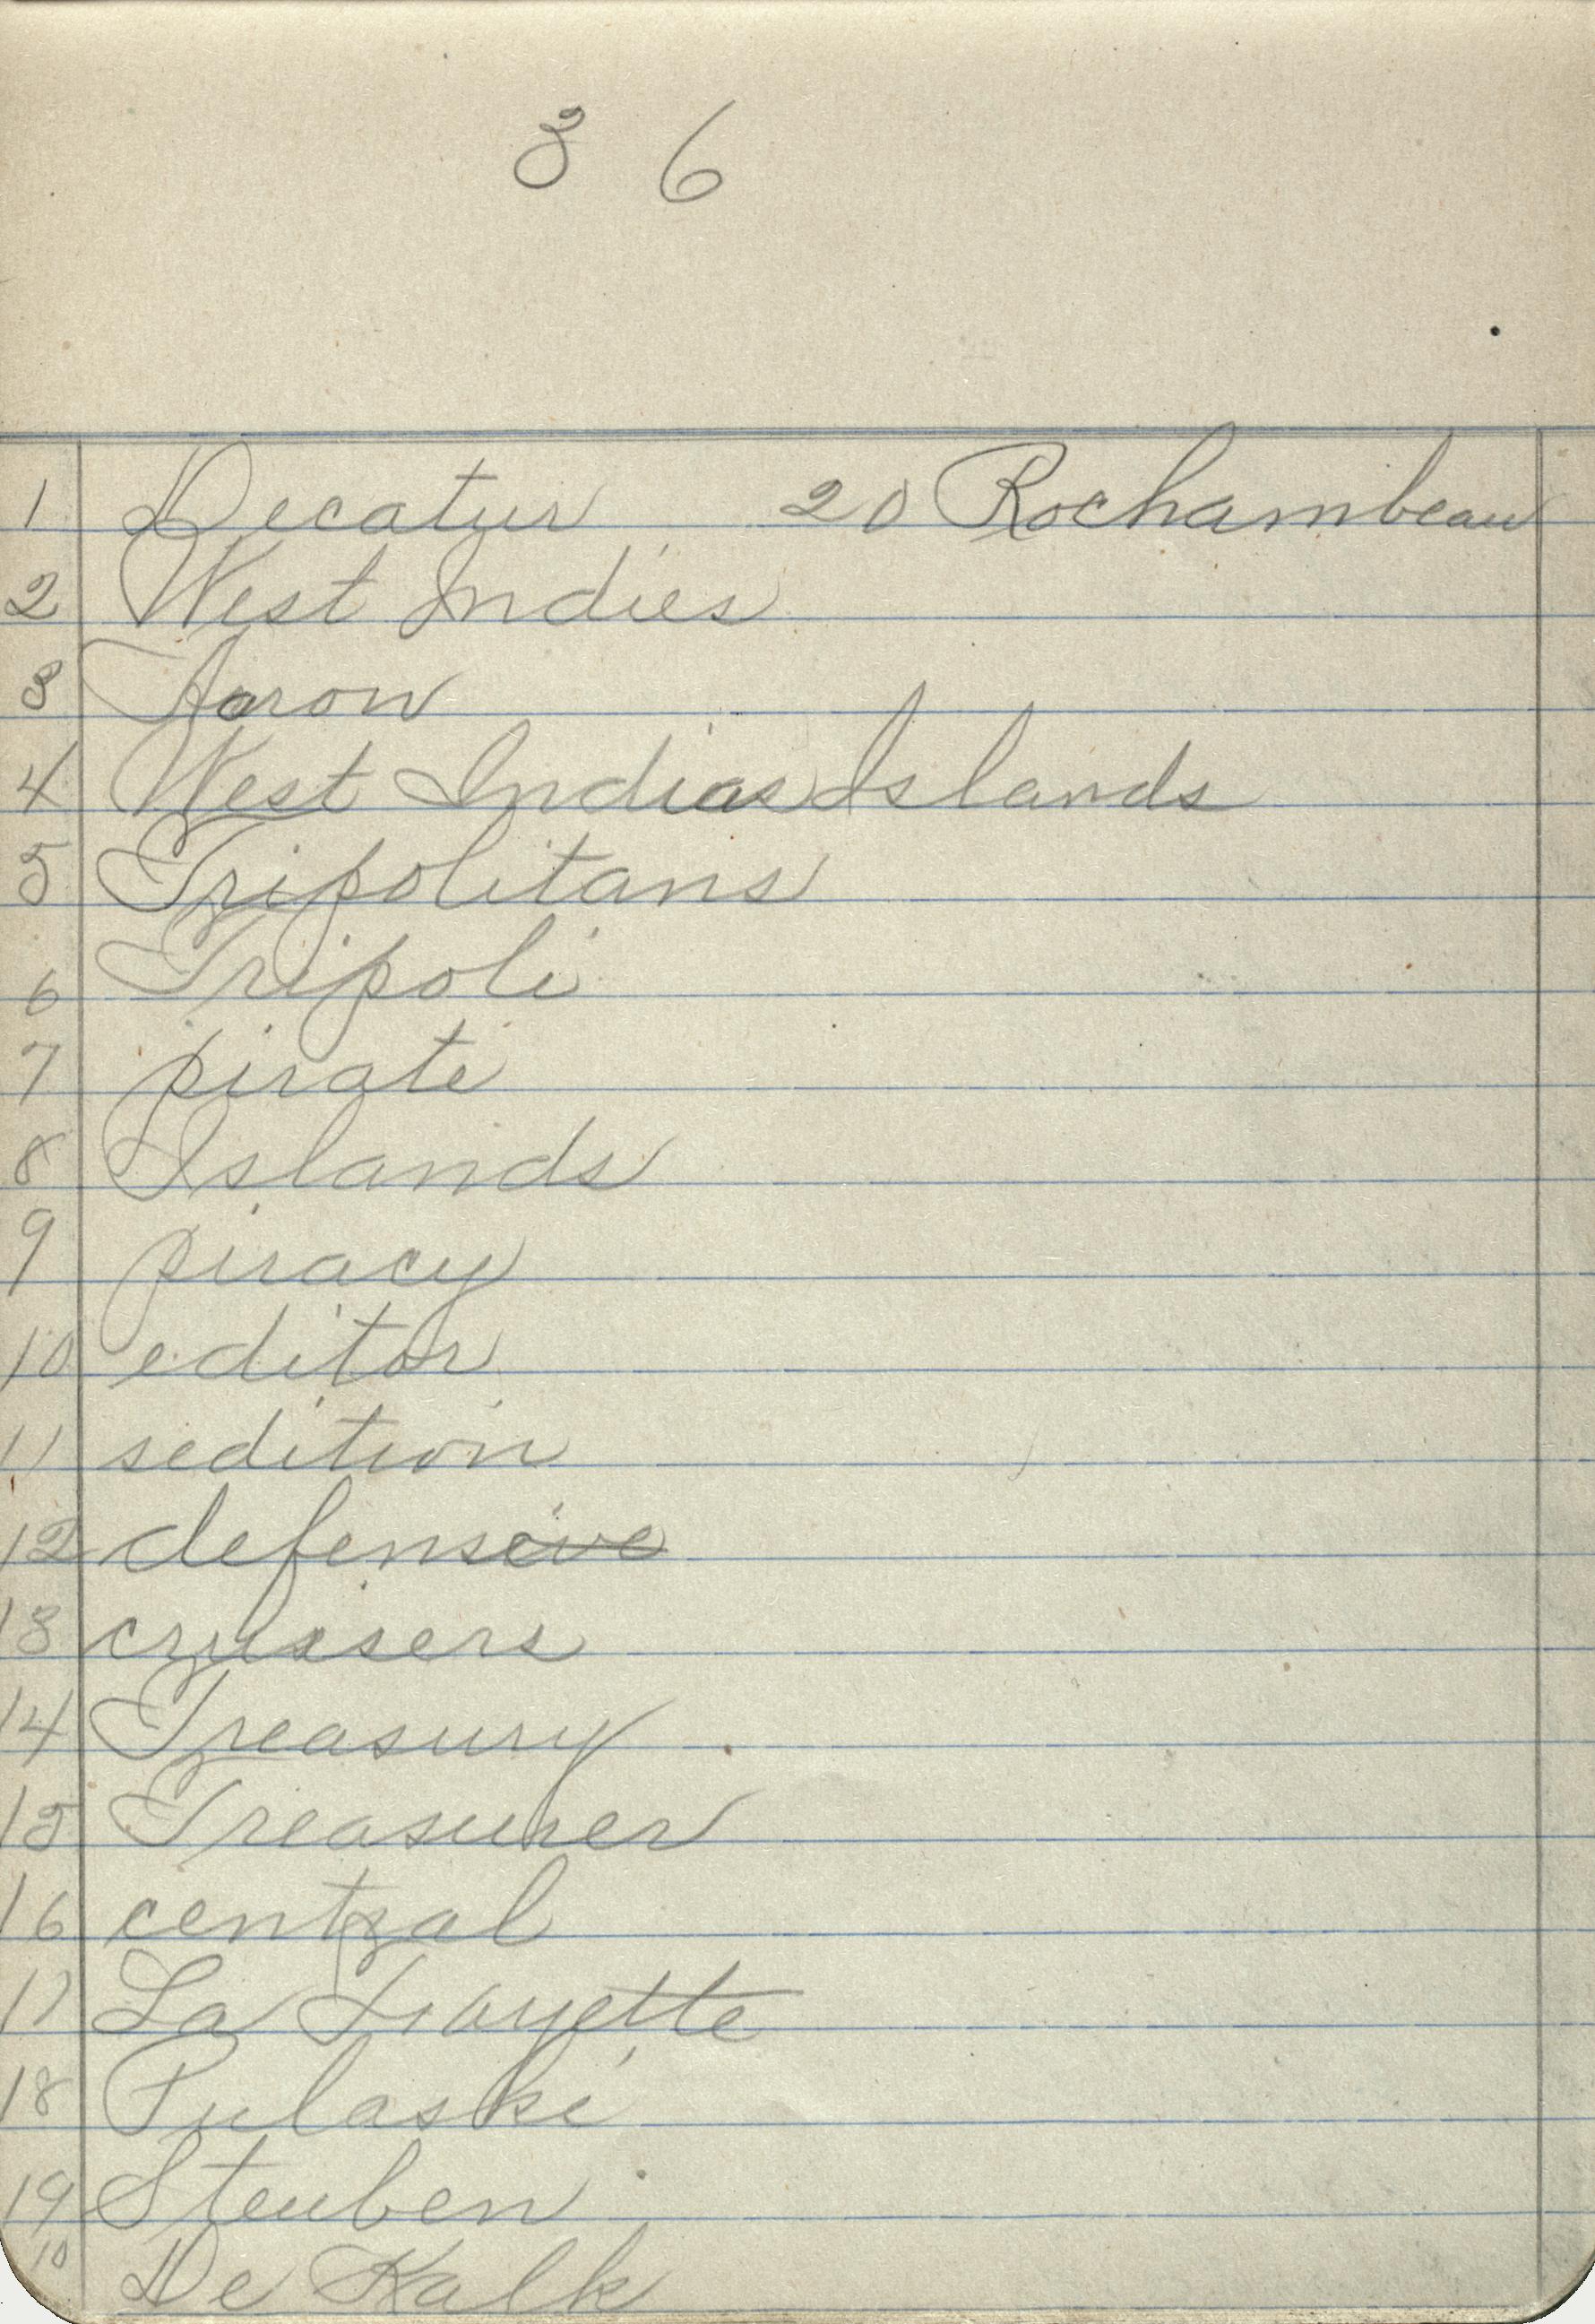 3 6
1 Decatur 20 Rochambeau
2 West Indies
3 Aaron
4 West Indias Islands
5 Tripolitans
6 Tripoli
7 pirate
8 Islands
9 piracy
10 editor
11 sedition
12 defensive
13 cruisers
14 Treasury
15 Treasurer
16 central
17 La Fayette
18 Pulaski
19 Steuben
10 De Kalk